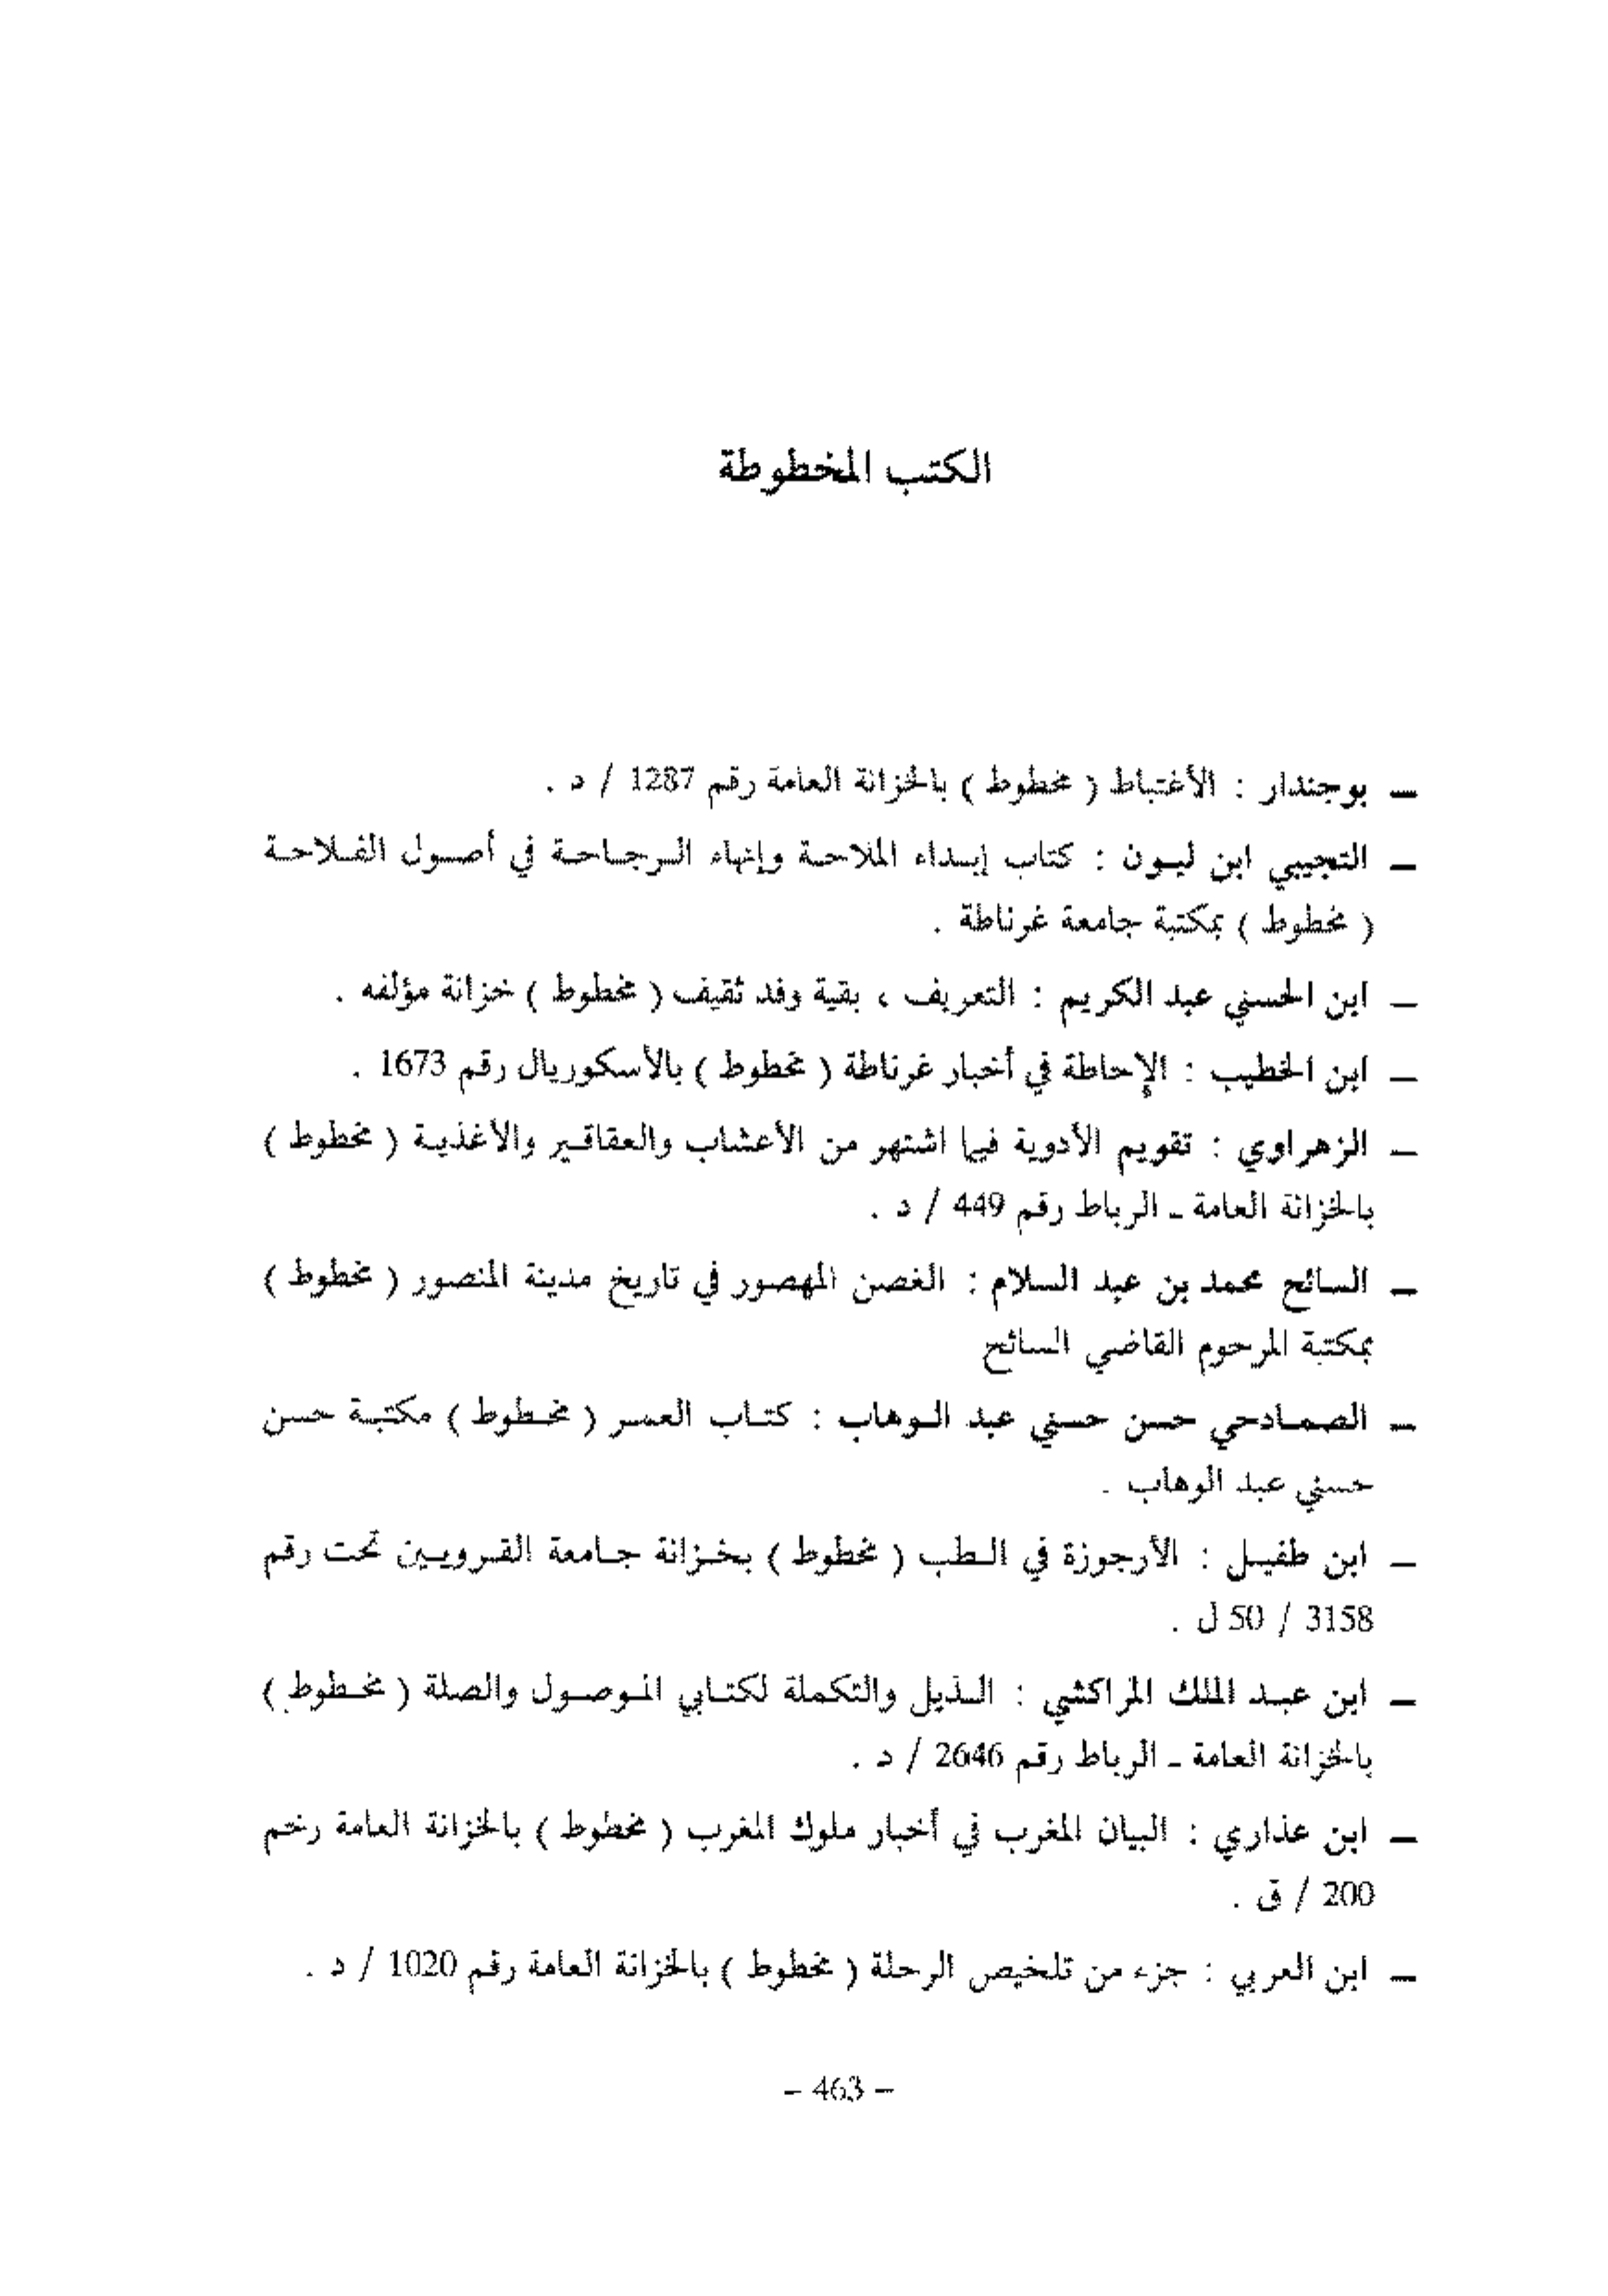 الكتب المخطوطة
ـ بوجندار : الأغتباط ( مخطوط ) بالخزانة العامة رقم 1287 / د .
ـ التجيبي ابن ليون : كتاب إبداء الملاحة وإنهاء الرجاحة في أصول الفلاحة
( مخطوط ) بمكتبة جامعة غرناطة .
ـ ابن الحسني عبد الكريم : التعريف ، بقية وفد ثقيف ( مخطوط ) خزانة مؤلفه .
ـ ابن الخطيب : الإحاطة في أخبار غرناطة ( مخطوط ) بالأسكوريال رقم 1673 .
ـ الزهراوي : تقويم الأدوية فيما اشتهر من الأعشاب والعقاقير والأغذية ( مخطوط )
بالخزانة العامة ـ الرباط رقم 449 / د .
ـ السائح محمد بن عبد السلام : الغصن المهصور في تاريخ مدينة المنصور ( مخطوط )
بمكتبة المرحوم القاضي السائح
ـ الصمادحي حسن حسني عبد الوهاب : كتاب العمر ( مخطوط ) مكتبة حسن
حسني عبد الوهاب .
ـ ابن طفيل : الأرجوزة في الطب ( مخطوط ) بخزانة جامعة القرويين تحت رقم
3158 / 50 ل .
ـ ابن عبد الملك المراكشي : الذيل والتكملة لكتابي الموصول والصلة ( مخطوط )
بالخزانة العامة ـ الرباط رقم 2646 / د .
ـ ابن عذاري : البيان المغرب في أخبار ملوك المغرب ( مخطوط ) بالخزانة العامة رخم
200 / ق .
ـ ابن العربي : جزء من تلخيص الرحلة ( مخطوط ) بالخزانة العامة رقم 1020 / د .
– 463 –